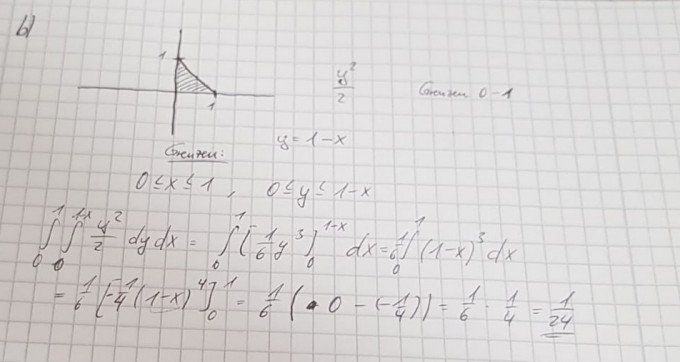 b)
1
1
y²/2
Grenzen 0-1
y = 1-x
Grenzen:
0 ≤ x ≤ 1 , 0 ≤ y ≤ 1-x
∫₀¹ ∫₀¹⁻ˣ y²/2 dy dx = ∫₀¹ [1/6 y³]₀¹⁻ˣ dx = 1/6 ∫₀¹ (1-x)³ dx
= 1/6 [-1/4 (1-x)⁴]₀¹ = 1/6 (0 - (-1/4)) = 1/6 · 1/4 = 1/24